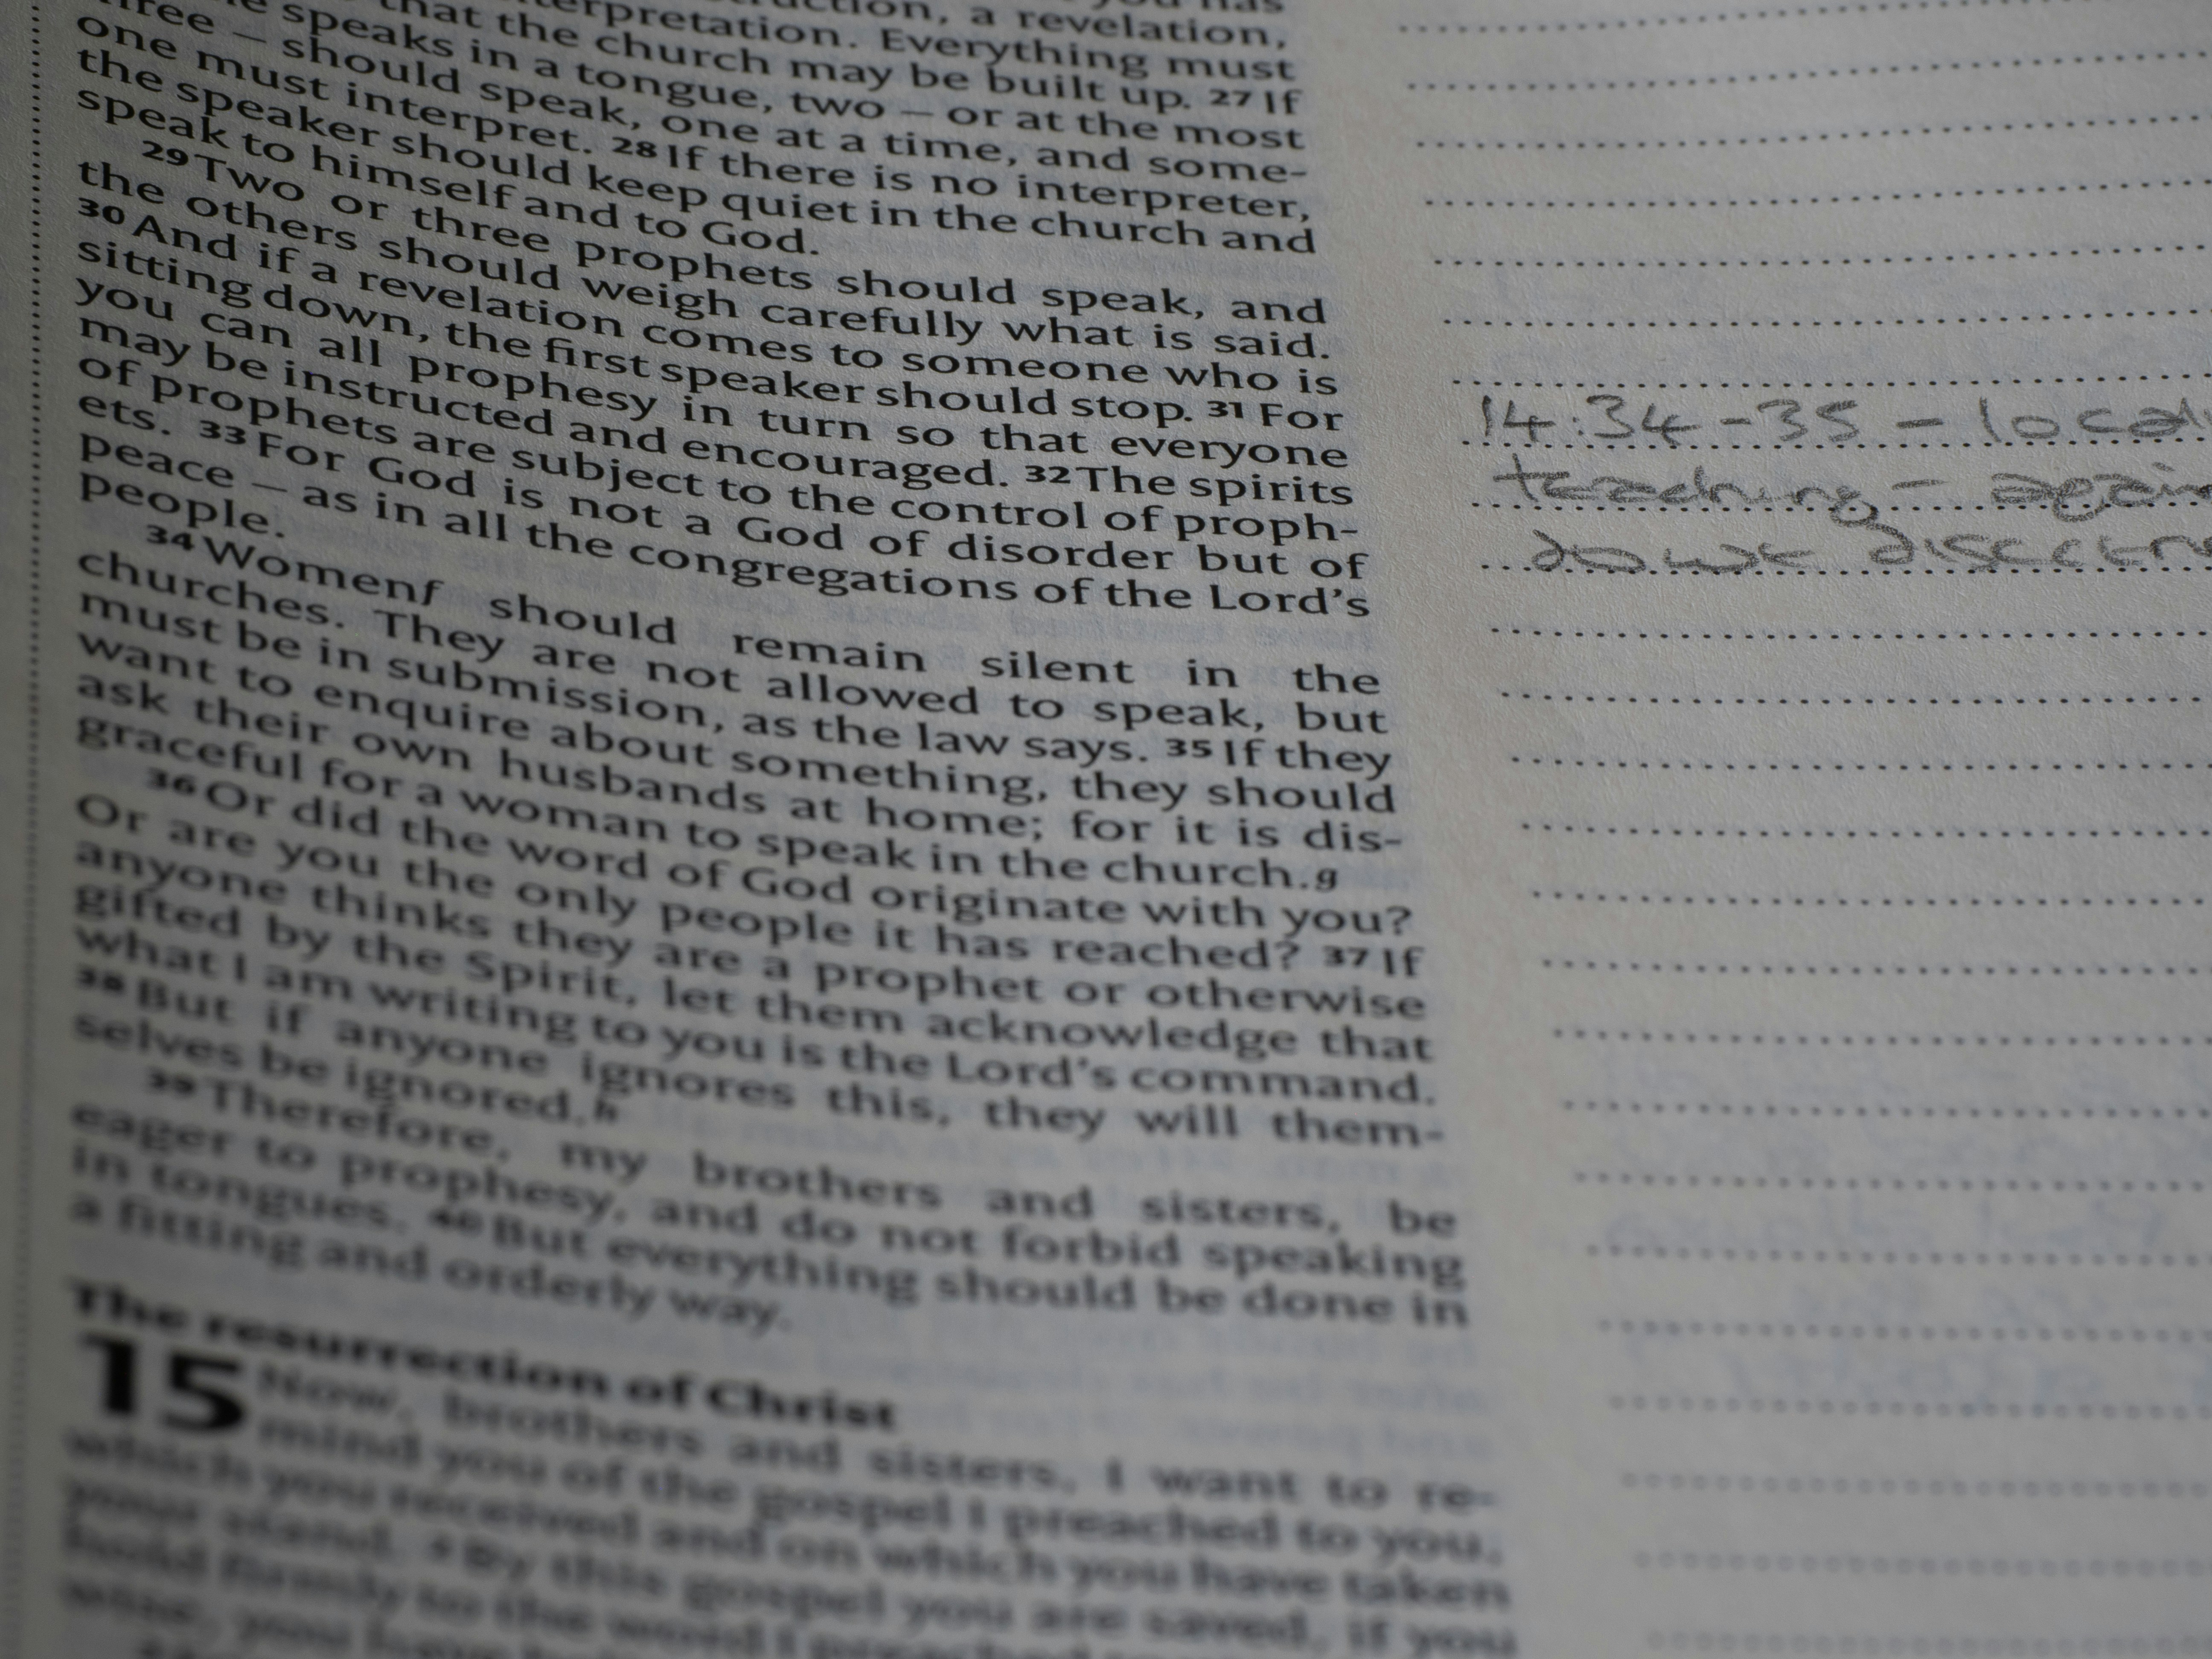 you has
a revelation,
interpretation. Everything must
that the church may be built up. 27 If
speaks in a tongue, two – or at the most
three – should speak, one at a time, and some-
one must interpret. 28 If there is no interpreter,
the speaker should keep quiet in the church and
speak to himself and to God.
29 Two or three prophets should speak, and
the others should weigh carefully what is said.
30 And if a revelation comes to someone who is
sitting down, the first speaker should stop. 31 For
you can all prophesy in turn so that everyone
may be instructed and encouraged. 32 The spirits
of prophets are subject to the control of proph-
ets. 33 For God is not a God of disorder but of
peace – as in all the congregations of the Lord's
people.
34 Womenf should remain silent in the
churches. They are not allowed to speak, but
must be in submission, as the law says. 35 If they
want to enquire about something, they should
ask their own husbands at home; for it is dis-
graceful for a woman to speak in the church.g
36 Or did the word of God originate with you?
Or are you the only people it has reached? 37 If
anyone thinks they are a prophet or otherwise
gifted by the Spirit, let them acknowledge that
what I am writing to you is the Lord's command.
38 But if anyone ignores this, they will them-
selves be ignored.h
39 Therefore, my brothers and sisters, be
eager to prophesy, and do not forbid speaking
in tongues. 40 But everything should be done in
a fitting and orderly way.
The resurrection of Christ
15 Now, brothers and sisters, I want to re-
mind you of the gospel I preached to you,
which you received and on which you have taken
your stand. 2 By this gospel you are saved, if you
hold firmly to the word I preached
14:34-35 - local
teaching -